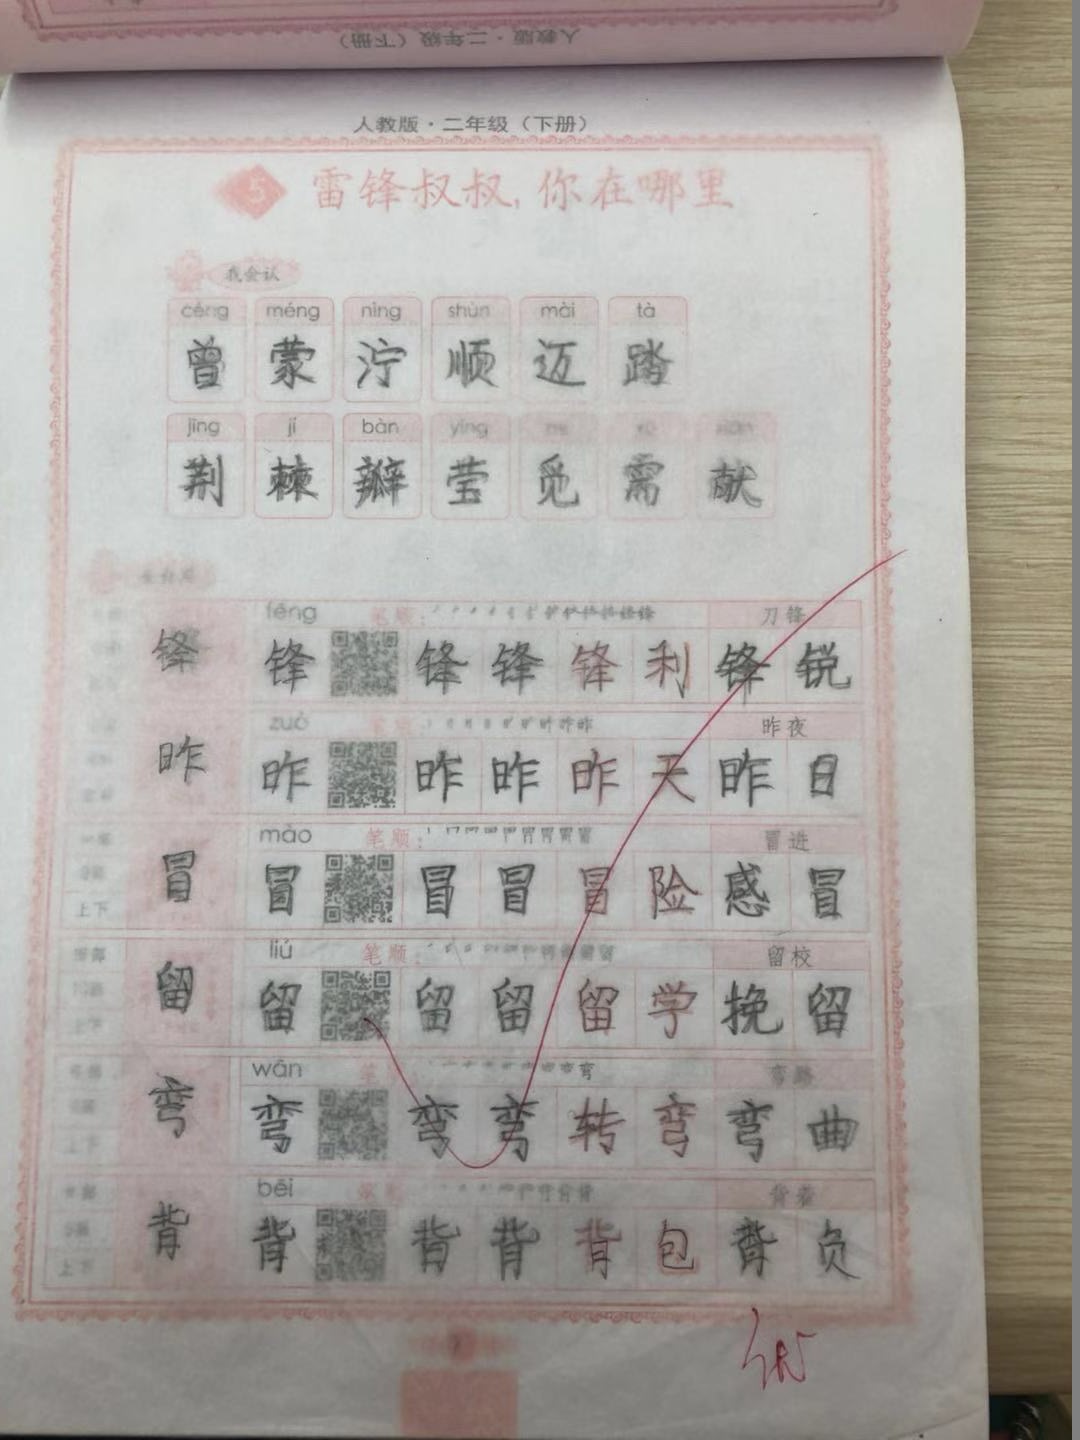 人教版·二年级（下册）
人教版·二年级（下册）
5 雷锋叔叔,你在哪里
我会认
céng méng nìng shùn mài tà
曾 蒙 泞 顺 迈 踏
jīng jí bàn yíng
荆 棘 瓣 莹 觅 需 献
fēng 笔顺： 刀锋
锋 锋 锋 锋 锋 利 锋 锐
zuó 昨夜
昨 昨 昨 昨 昨 天 昨 日
mào 笔顺： 冒进
冒 冒 冒 冒 冒 险 感 冒
上下
liú 笔顺： 留校
留 留 留 留 留 学 挽 留
上下
wān 弯路
弯 弯 弯 弯 转 弯 弯 曲
bēi 背着
背 背 背 背 背 包 背 负
上下